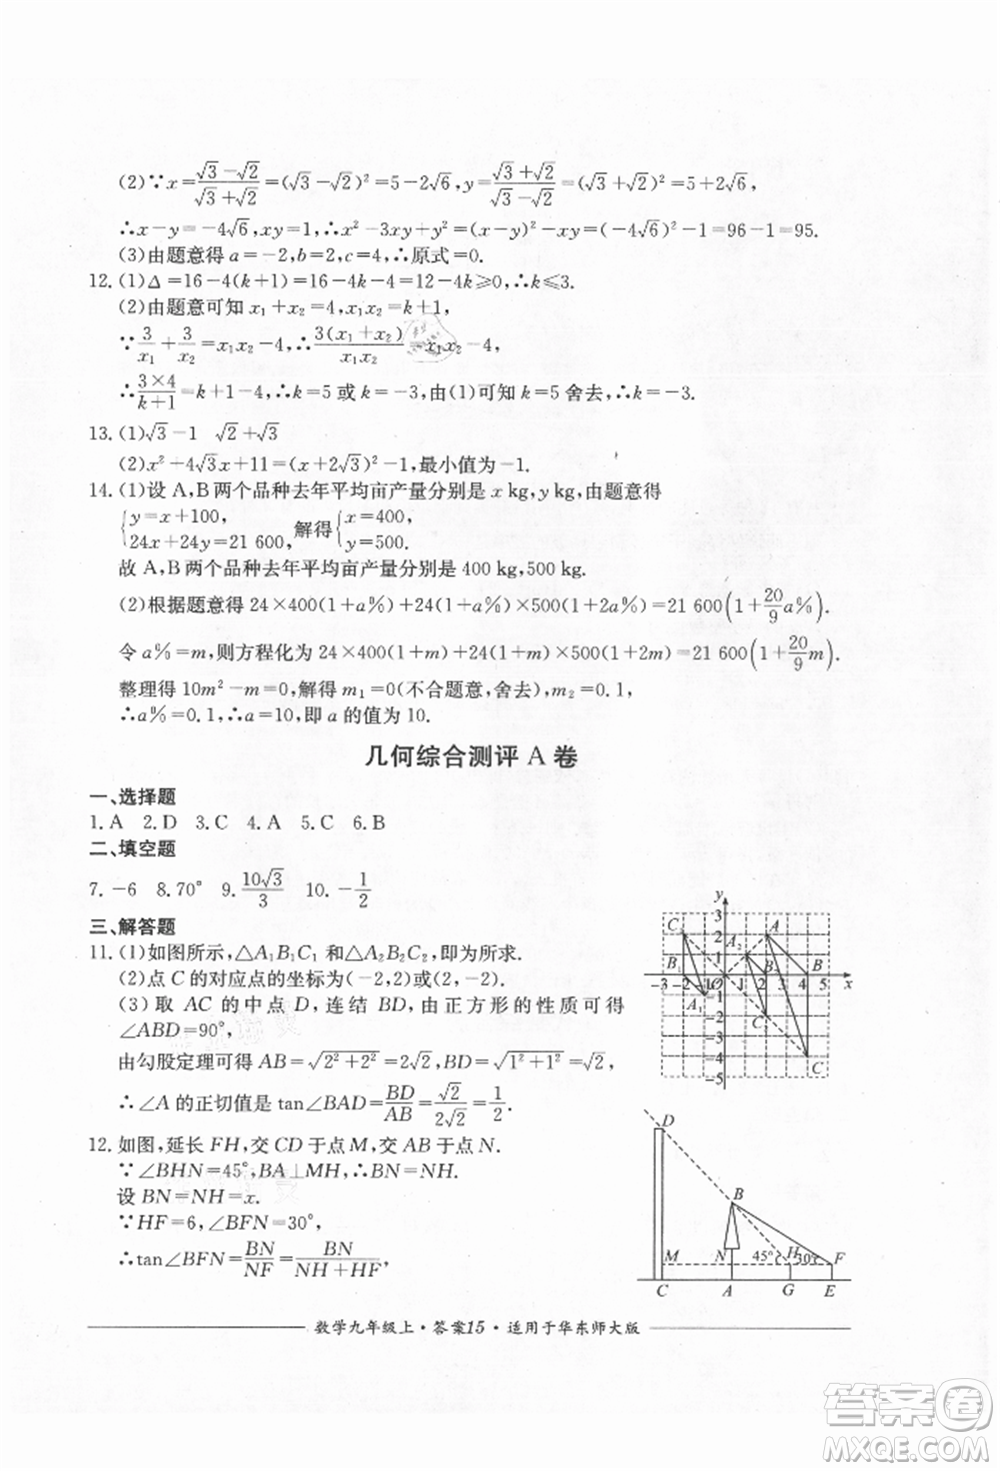 (2)∵x=(√3−√2)/(√3+√2)=(√3−√2)²=5−2√6,y=(√3+√2)/(√3−√2)=(√3+√2)²=5+2√6,
∴x−y=−4√6,xy=1,∴x²−3xy+y²=(x−y)²−xy=(−4√6)²−1=96−1=95.
(3)由题意得a=−2,b=2,c=4,∴原式=0.
12.(1)Δ=16−4(k+1)=16−4k−4=12−4k≥0,∴k≤3.
(2)由题意可知x₁+x₂=4,x₁x₂=k+1,
∵3/x₁+3/x₂=x₁x₂−4,∴3(x₁+x₂)/x₁x₂=x₁x₂−4,
∴3×4/(k+1)=k+1−4,∴k=5或k=−3,由(1)可知k=5舍去,∴k=−3.
13.(1)√3−1 √2+√3
(2)x²+4√3x+11=(x+2√3)²−1,最小值为−1.
14.(1)设A,B两个品种去年平均亩产量分别是x kg,y kg,由题意得
{y=x+100, 24x+24y=21 600, 解得{x=400, y=500.
故A,B两个品种去年平均亩产量分别是400 kg,500 kg.
(2)根据题意得24×400(1+a%)+24(1+a%)×500(1+2a%)=21 600(1+20/9 a%).
令a%=m,则方程化为24×400(1+m)+24(1+m)×500(1+2m)=21 600(1+20/9 m).
整理得10m²−m=0,解得m₁=0(不合题意,舍去),m₂=0.1,
∴a%=0.1,∴a=10,即a的值为10.
几何综合测评A卷
一、选择题
1.A 2.D 3.C 4.A 5.C 6.B
二、填空题
7.−6 8.70° 9.10√3/3 10.−1/2
三、解答题
11.(1)如图所示,△A₁B₁C₁和△A₂B₂C₂,即为所求.
(2)点C的对应点的坐标为(−2,2)或(2,−2).
(3)取AC的中点D,连结BD,由正方形的性质可得
∠ABD=90°,
由勾股定理可得AB=√(2²+2²)=2√2,BD=√(1²+1²)=√2,
∴∠A的正切值是tan∠BAD=BD/AB=√2/2√2=1/2.
12.如图,延长FH,交CD于点M,交AB于点N.
∵∠BHN=45°,BA⊥MH,∴BN=NH.
设BN=NH=x.
∵HF=6,∠BFN=30°,
∴tan∠BFN=BN/NF=BN/(NH+HF),
y
3
2
1
−3−2 O 1 2 3 4 5 x
−1
−2
−3
−4
−5
A
B
C
A₁
B₁
C₁
A₂
B₂
C₂
D
B
M N 45° H 30° F
C A G E
数学九年级上·答案15·适用于华东师大版
答案圈
MXQE.COM